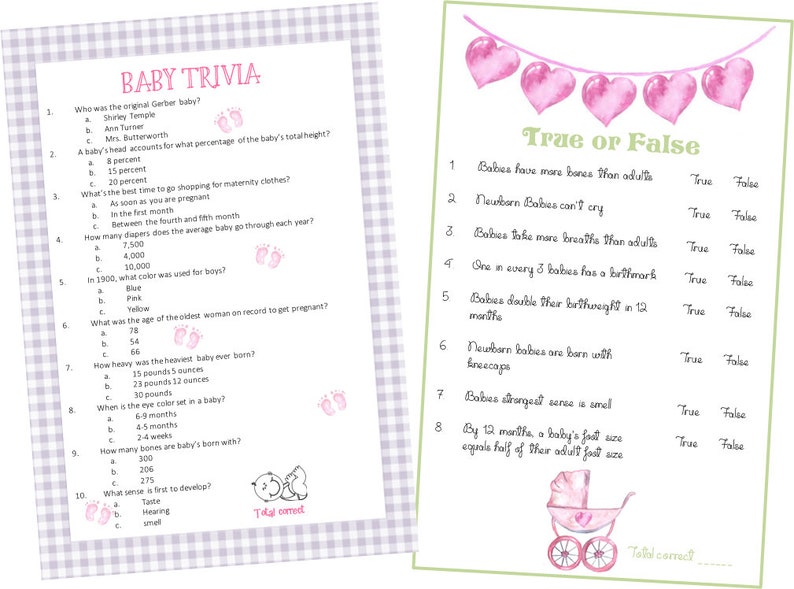 BABY TRIVIA
1. Who was the original Gerber baby?
a. Shirley Temple
b. Ann Turner
c. Mrs. Butterworth
2. A baby's head accounts for what percentage of the baby's total height?
a. 8 percent
b. 15 percent
c. 20 percent
3. What's the best time to go shopping for maternity clothes?
a. As soon as you are pregnant
b. In the first month
c. Between the fourth and fifth month
4. How many diapers does the average baby go through each year?
a. 7,500
b. 4,000
c. 10,000
5. In 1900, what color was used for boys?
a. Blue
b. Pink
c. Yellow
6. What was the age of the oldest woman on record to get pregnant?
a. 78
b. 54
c. 66
7. How heavy was the heaviest baby ever born?
a. 15 pounds 5 ounces
b. 23 pounds 12 ounces
c. 30 pounds
8. When is the eye color set in a baby?
a. 6-9 months
b. 4-5 months
c. 2-4 weeks
9. How many bones are baby's born with?
a. 300
b. 206
c. 275
10. What sense is first to develop?
a. Taste
b. Hearing
c. smell
Total correct
True or False
1 Babies have more bones than adults True False
2 Newborn Babies can't cry True False
3 Babies take more breaths than adults True False
4 One in every 3 babies has a birthmark True False
5 Babies double their birthweight in 12 True False
months
6 Newborn babies are born with True False
kneecaps
7 Babies strongest sense is smell True False
8 By 12 months, a baby's foot size True False
equals half of their adult foot size
Total correct ______